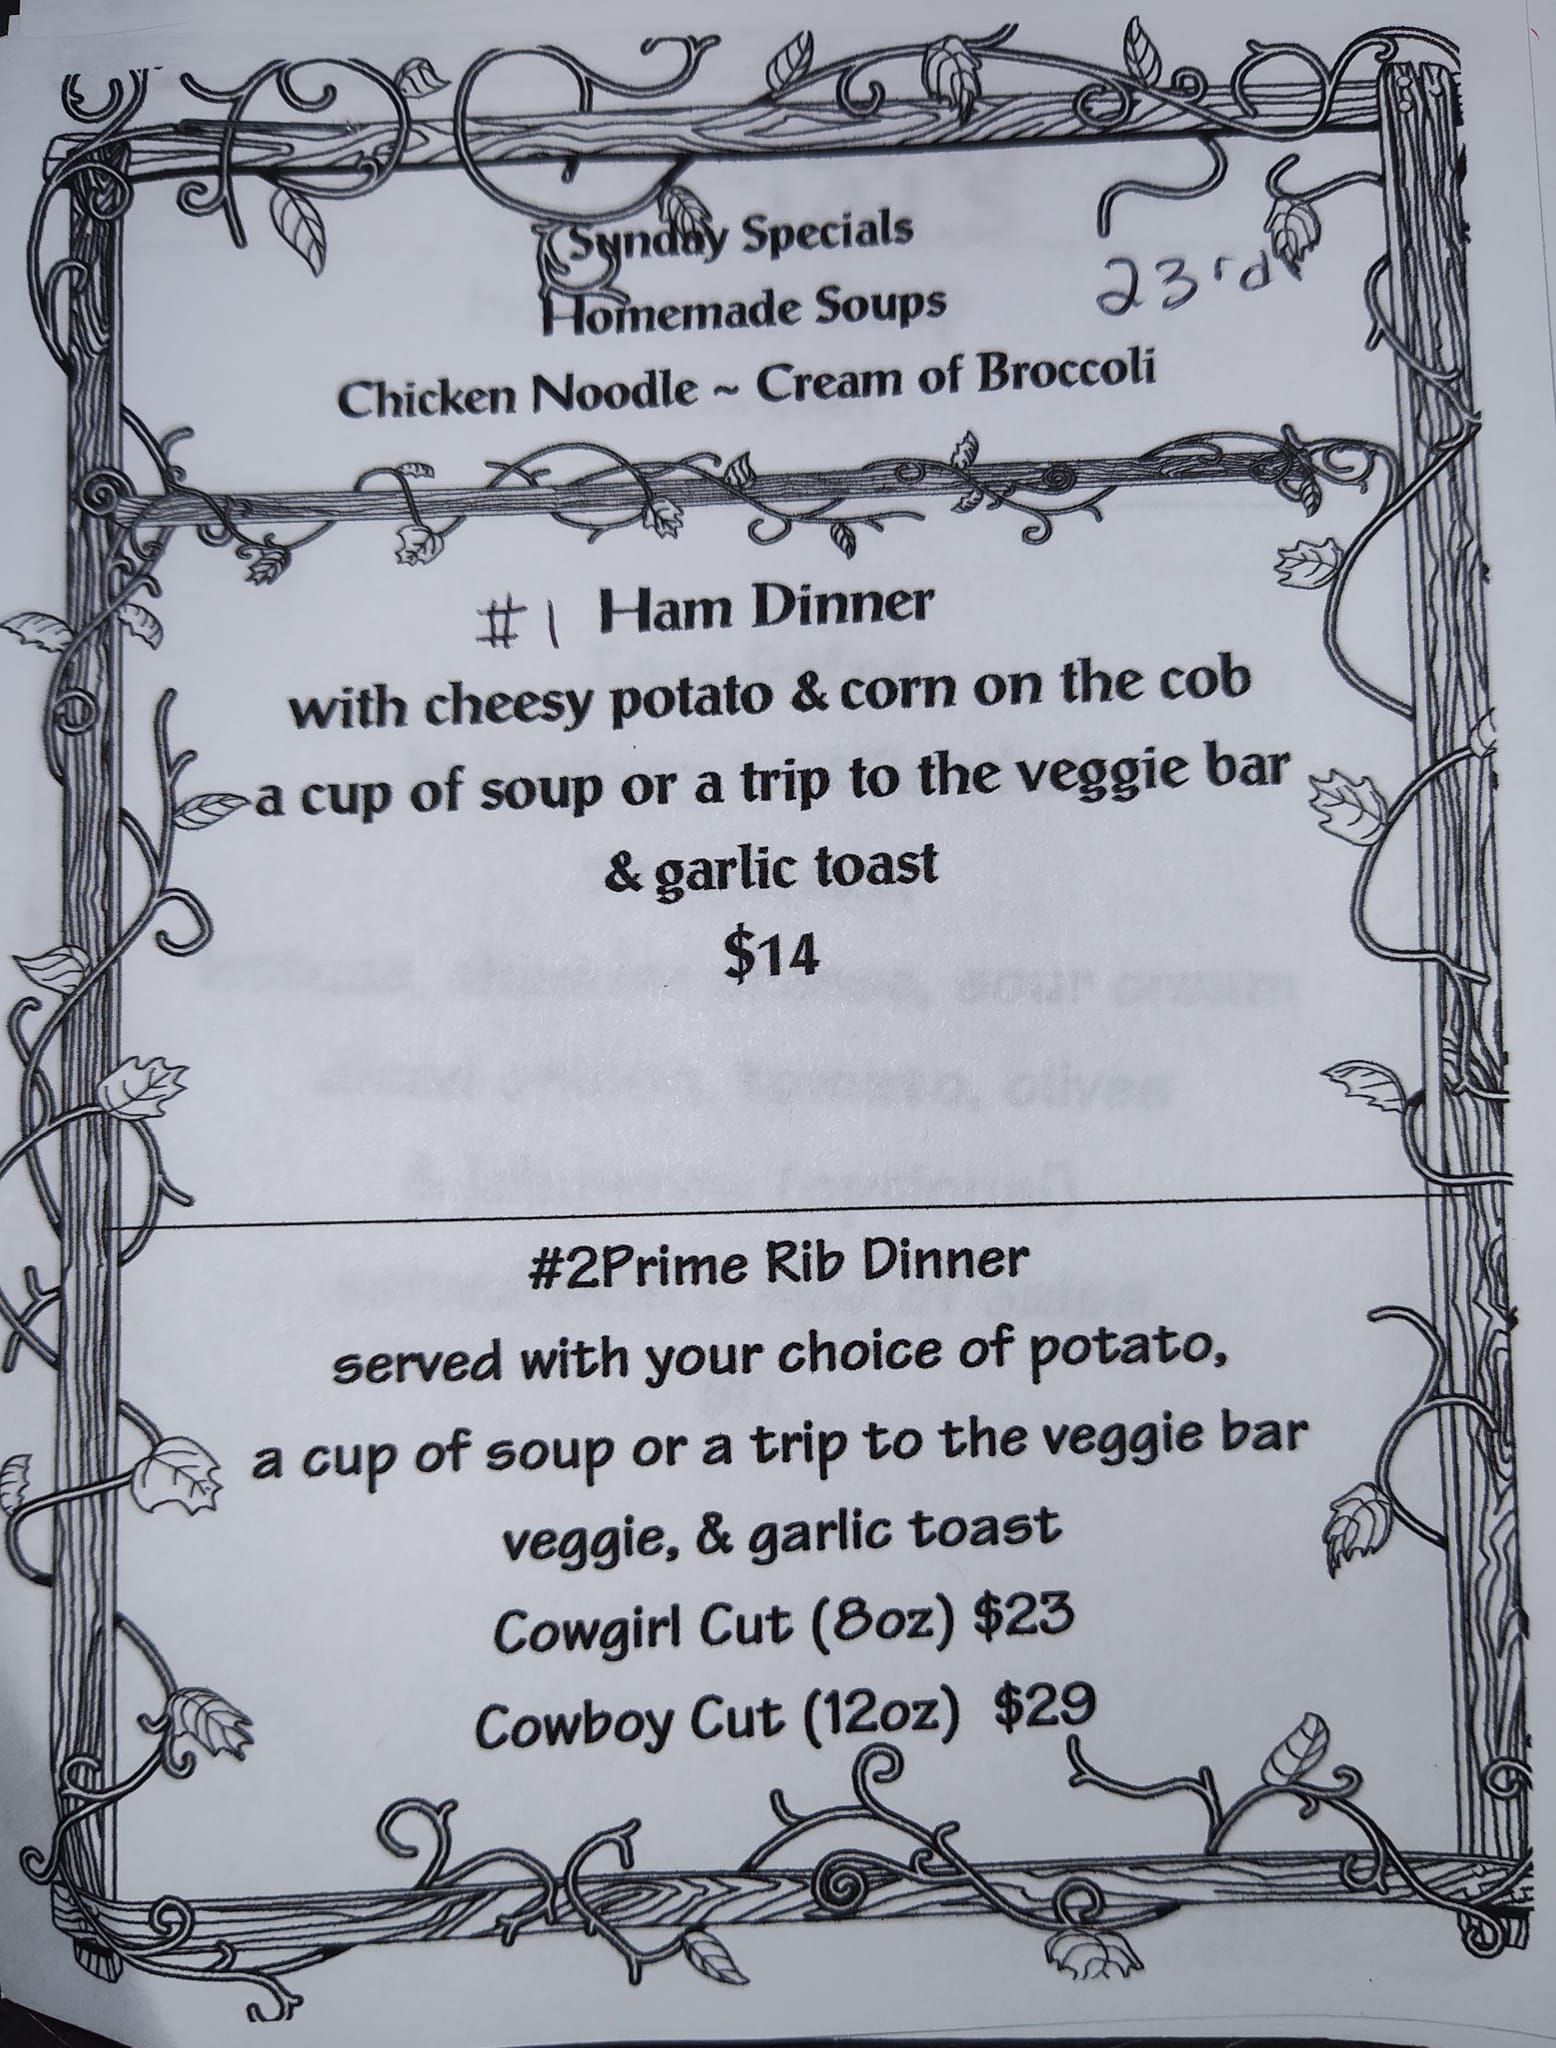 Sunday Specials
23rd
Homemade Soups
Chicken Noodle ~ Cream of Broccoli
#1 Ham Dinner
with cheesy potato & corn on the cob
a cup of soup or a trip to the veggie bar
& garlic toast
$14
#2Prime Rib Dinner
served with your choice of potato,
a cup of soup or a trip to the veggie bar
veggie, & garlic toast
Cowgirl Cut (8oz) $23
Cowboy Cut (12oz) $29